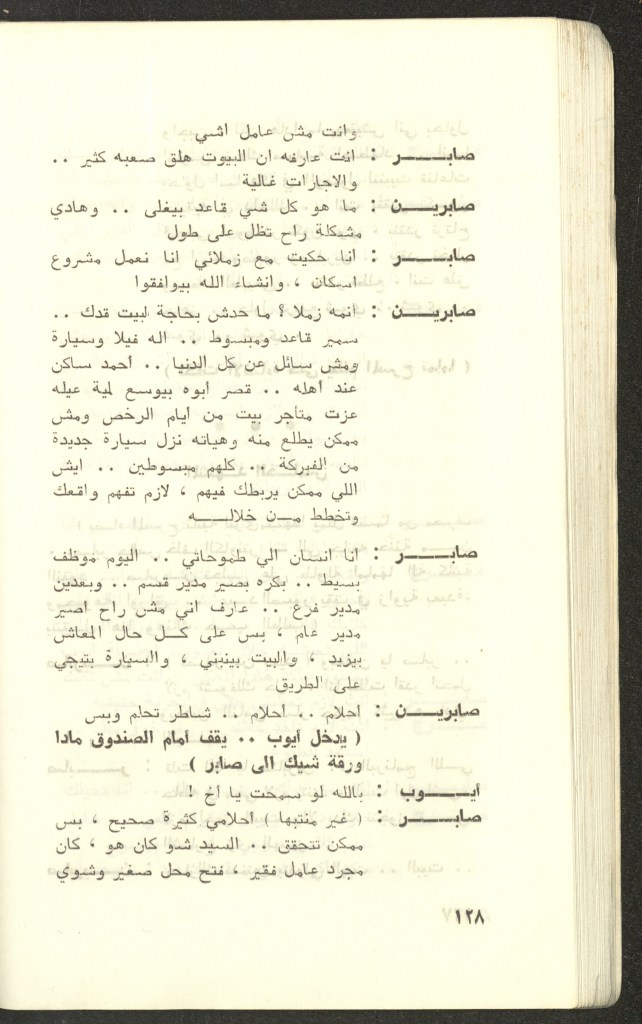 وانت مش عامل اشي
صابـــــر : انت عارفه ان البيوت هلق صعبه كثير ..
والاجارات غالية
صابريــــن : ما هو كل شي قاعد بيغلى .. وهادي
مشكلة راح تظل على طول
صابـــــر : انا حكيت مع زملائي انا نعمل مشروع
اسكان ، وانشاء الله بيوافقوا
صابريــــن : انمه زملا ؟ ما حدش بحاجة لبيت قدك ..
سمير قاعد ومبسوط .. اله فيلا وسيارة
ومش سائل عن كل الدنيا .. احمد ساكن
عند اهله .. قصر ابوه بيوسع لمية عيله
عزت متأجر بيت من ايام الرخص ومش
ممكن يطلع منه وهياته نزل سيارة جديدة
من الفبركة .. كلهم مبسوطين .. ايش
اللي ممكن يربطك فيهم ، لازم تفهم واقعك
وتخطط مــن خلالــــه
صابـــــر : انا انسان الي طموحاتي .. اليوم موظف
بسيط .. بكره بصير مدير قسم .. وبعدين
مدير فرع .. عارف اني مش راح اصير
مدير عام ، بس على كــل حال المعاش
بيزيد ، والبيت بينبني ، والسيارة بتيجي
على الطريق
صابريــــن : احلام .. احلام .. شاطر تحلم وبس
( يدخل أيوب .. يقف امام الصندوق مادا
ورقة شيك الى صابر )
أيــــوب : بالله لو سمحت يا اخ !
صابـــــر : ( غير منتبها ) احلامي كثيرة صحيح ، بس
ممكن تتحقق .. السيد شو كان هو ، كان
مجرد عامل فقير ، فتح محل صغير وشوي
١٢٨